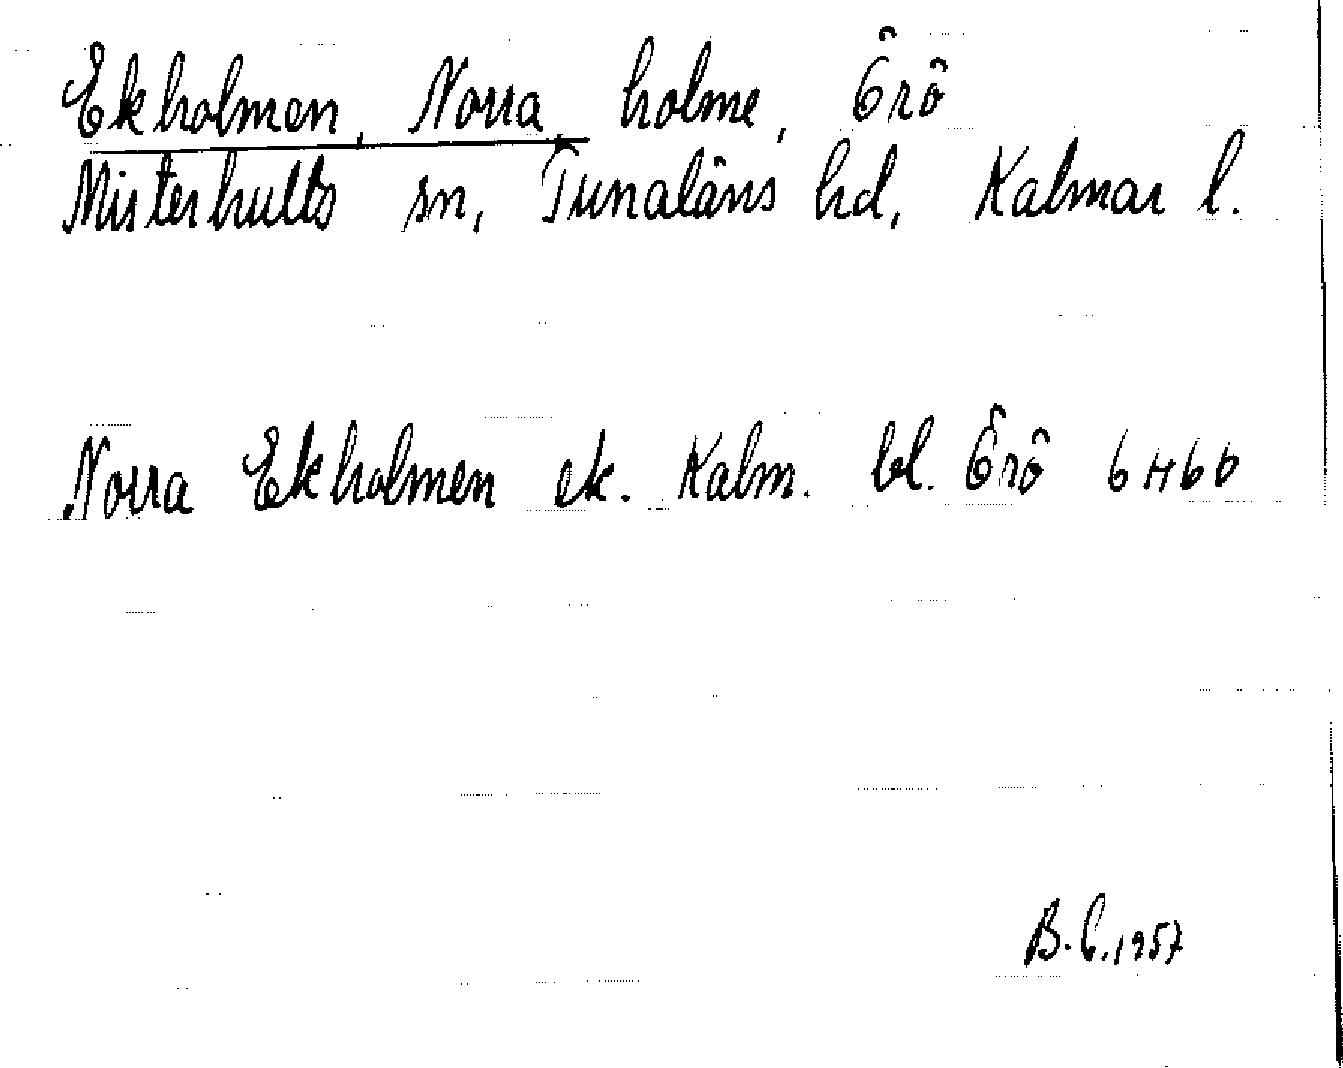 Ekholmen, Norra, holme, Örö
Misterhults sn, Tunaläns hd, Kalmar l.
Norra Ekholmen ek. Kalm. bl. Örö 6H6b
B.C.1957